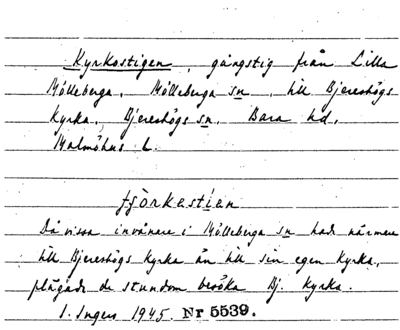 Kyrkostigen, gångstig från Lilla
Mölleberga, Mölleberga sn, till Bjereshögs
kyrka, Bjereshögs sn, Bara hd,
Malmöhus L.
fjörkestien
Då vissa invånare i Mölleberga sn hade närmare
till Bjereshögs kyrka än till sin egen kyrka,
plägade de stundom besöka Bj. kyrka.
I. Ingers 1945. Nr 5539.